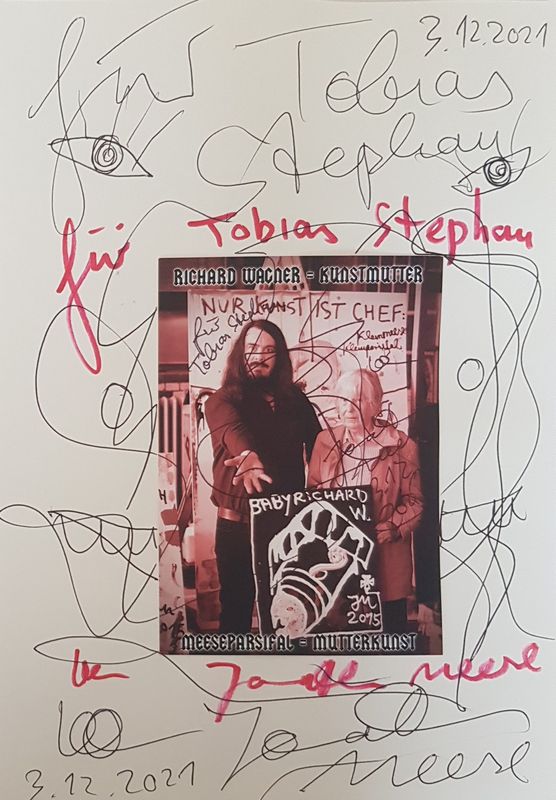 3.12.2021
für Tobias
Stephan
für Tobias Stephan
RICHARD WAGNER = KUNSTMUTTER
NUR KUNST IST CHEF:
für
Tobias Stephan
BABYRICHARD
W.
JM
2015
MEESEPARSIFAL = MUTTERKUNST
Jonathan Meese
Jonathan
Meese
3.12.2021